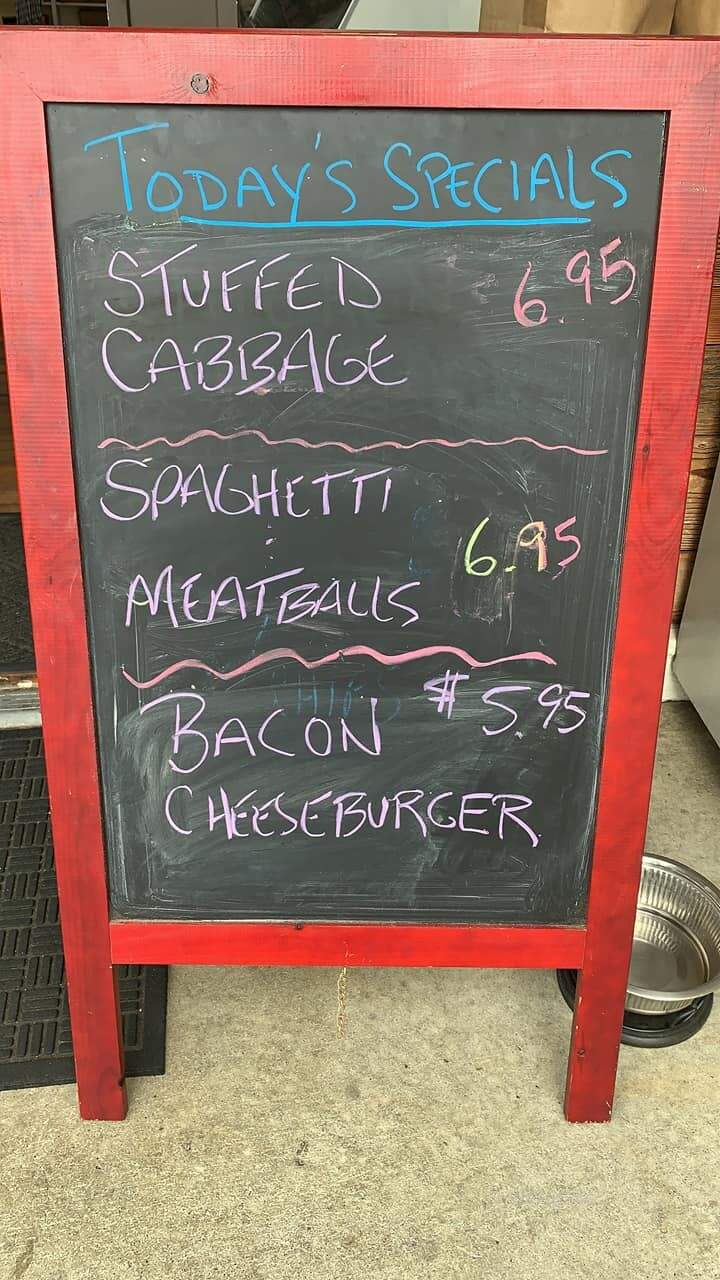 TODAY'S SPECIALS
STUFFED 6.95
CABBAGE
SPAGHETTI
6.95
MEATBALLS
BACON $5.95
CHEESEBURGER